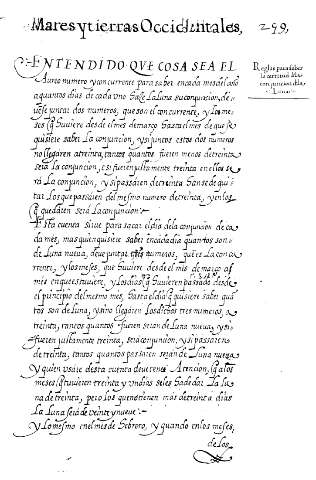 Mares y tierras Occidentales,
299,
Regla para saber
la
conjuncion dela
Luna
ENTENDIDO QVE COSA SEA EL
Aureo numero y concurrente para saber en cada mes del año
a quantos dias de cada vno Sale la Luna su conjuncion, de
uese juntar dos numeros, que son el concurrente, y los me
ses q̃ huuiere desde el mes de março hasta el mes de que se
quisiere saber La conjuncion, y si juntos estos dos numeros
no llegaren a treinta, tantos quantos fueren menos de treinta
sera La conjuncion, y si fueren justamente treinta en ellos se
rá La conjuncion, y si passaren de treinta Hanse de qui
tar los que passaren del mesmo numero de treinta, y en los
q̃ quedaren Será La conjuncion
Esta cuenta sirue para sacar el dia de la conjuncion de ca
da mes, mas quien quisiere saber en cada dia quantos son
de Luna nueva, deue juntar tres numeros, que es La concu
rrente, y los meses, que huuiere desde el mes de março al
mes en que estuuiere, y los dias q̃ huuieren passado desde
el principio del mesmo mes, hasta el dia q̃ quisiere saber quã
tos son de Luna, y si no llegaren los dichos tres numeros, a
treinta, tantos quantos fueren seran de Luna nueva, y si
fueren justamente treinta, sera conjuncion, y si passaren
de treinta, tantos quantos passaren seran de Luna nueva
Y quien vsare desta cuenta deue tener Atencion, q̃ a los
meses q̃ tuuieren treinta y vn dias se les ha de dar La Lu
na de treinta, pero los que no tienen mas de treinta dias
La Luna será de veinte y nueve
Y lo mesmo en el mes de Febrero, y quando en los meses,
de los